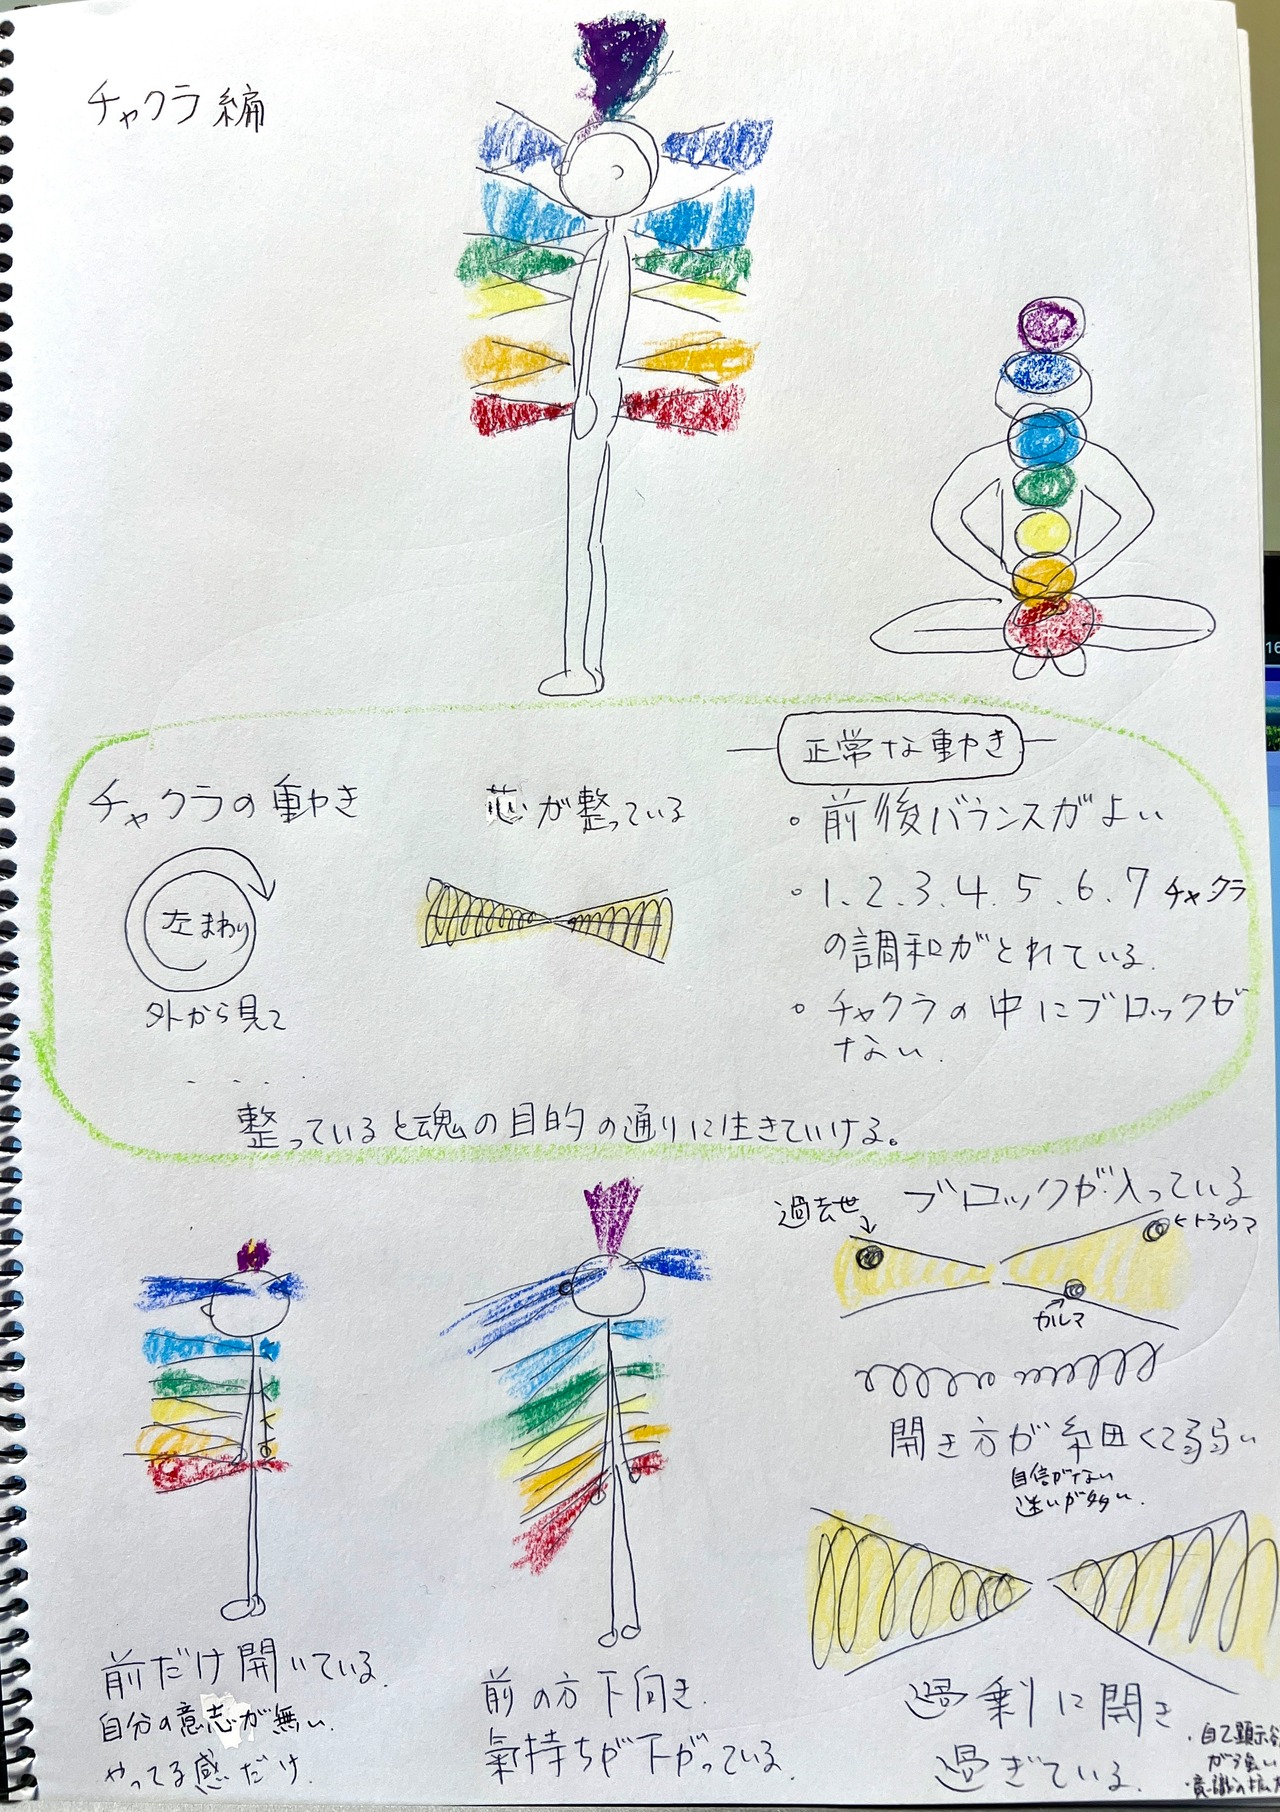 チャクラ編
正常な動き
チャクラの動き
芯が整っている
左まわり
外から見て
・前後バランスがよい
・1.2.3.4.5.6.7チャクラ
の調和がとれている.
・チャクラの中にブロックが
ない.
整っていると魂の目的の通りに生きていける。
ブロックが入っている
過去世
トラウマ
カルマ
開き方が細くて弱い
自信がない
迷いが多い.
前だけ開いている.
自分の意志が無い.
やってる感だけ.
前の方下向き.
氣持ちが下がっている.
過剰に開き
過ぎている.
・自己顕示
が強い
・意識の拡大